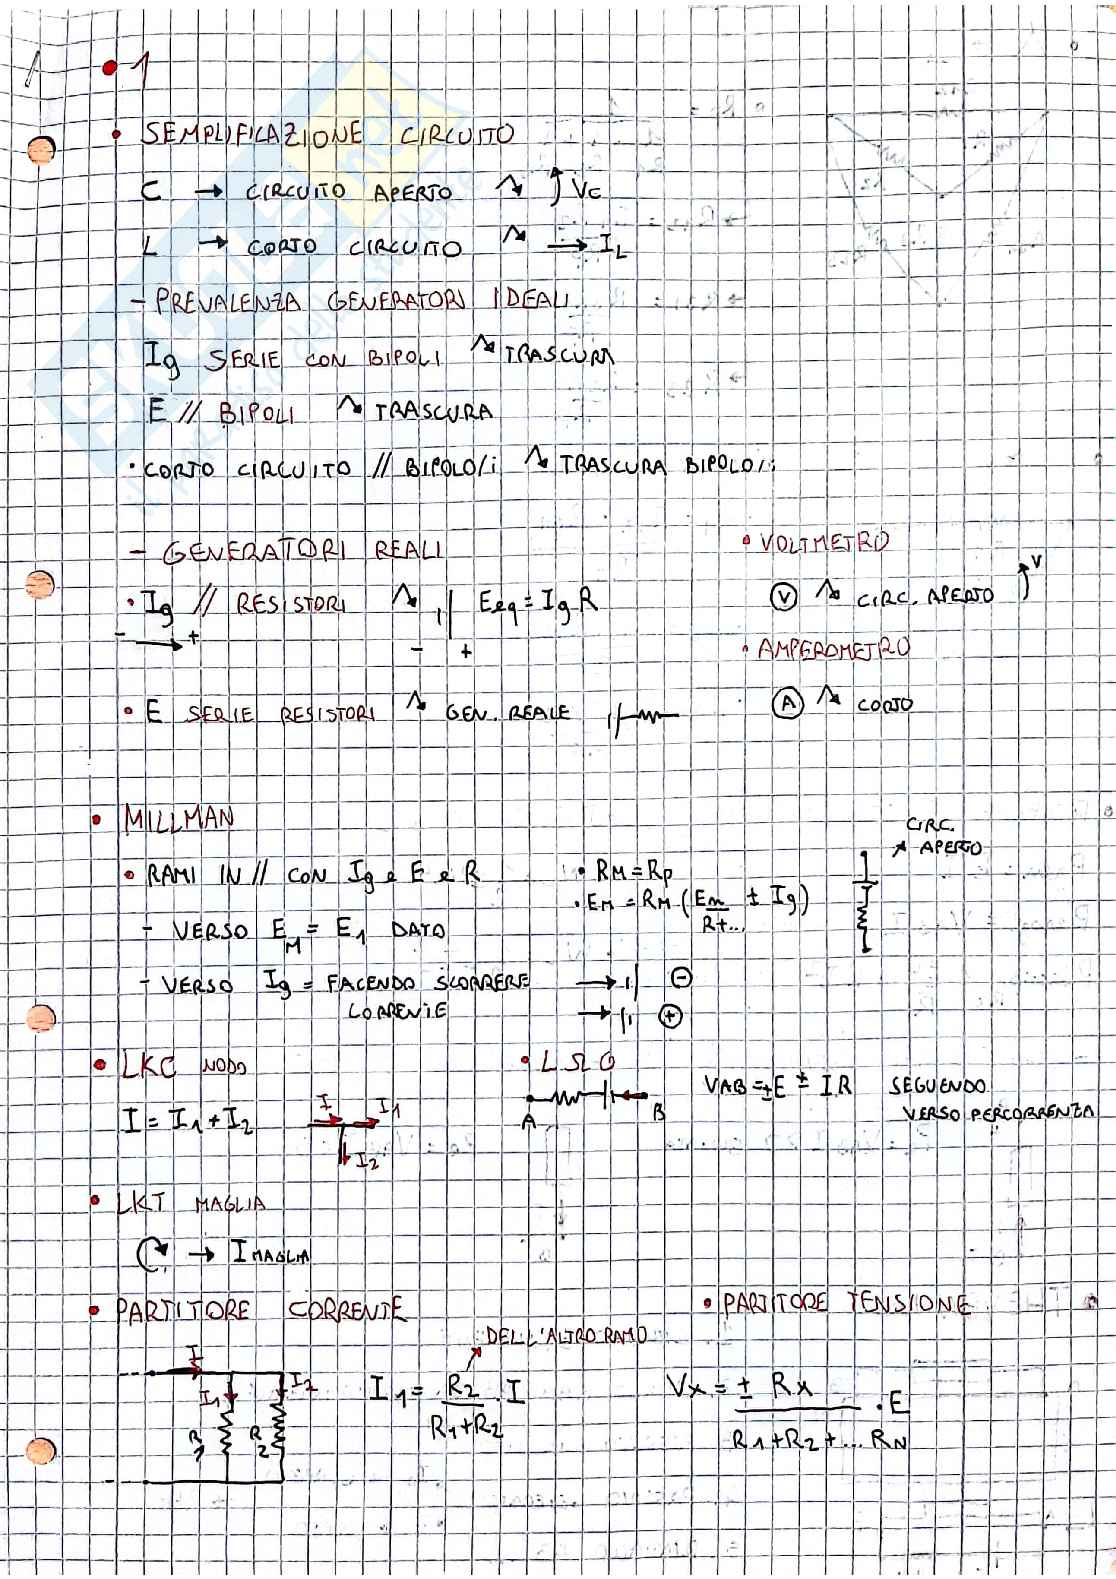 • 1
• SEMPLIFICAZIONE CIRCUITO
C → CIRCUITO APERTO Vc
L → CORTO CIRCUITO → IL
- PREVALENZA GENERATORI IDEALI
Ig SERIE CON BIPOLI TRASCURA
E // BIPOLI TRASCURA
• CORTO CIRCUITO // BIPOLO/i TRASCURA BIPOLO/i
- GENERATORI REALI
• Ig // RESISTORI Eeq = Ig R
- → + - +
• E SERIE RESISTORI GEN. REALE
• VOLTMETRO
V CIRC. APERTO V
• AMPEROMETRO
A CORTO
• MILLMAN
• RAMI IN // CON Ig e E e R
- VERSO EM = E1 DATO
- VERSO Ig = FACENDO SCORRERE
CORRENTE
• RM = Rp
• EM = RM (En/R+... ± Ig)
CIRC.
APERTO
→ -
→ +
• LKC NODO
I = I1 + I2
I I1
I2
• LΩG
A B
VAB = ±E ± I.R SEGUENDO
VERSO PERCORRENZA
• LKT MAGLIA
→ I MAGLIA
• PARTITORE CORRENTE
DELL'ALTRO RAMO
I
I1 I2
R1 R2
I1 = R2/(R1+R2) · I
• PARTITORE TENSIONE
Vx = ± Rx/(R1+R2+... RN) · E